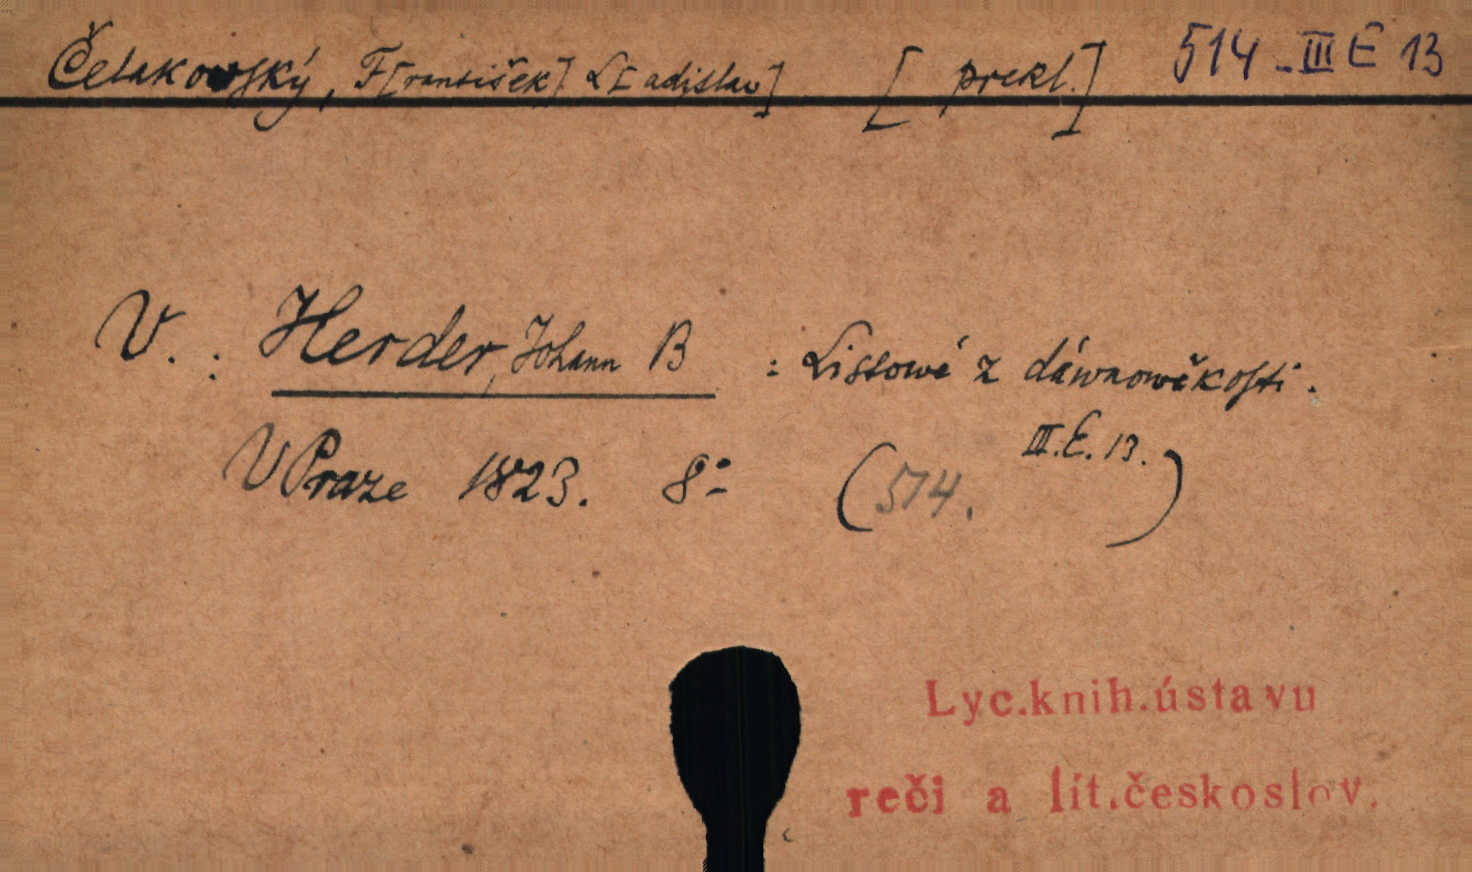 Čelakovský, F[rantišek] L[adislav] [prekl.] 514-III E 13
V.: Herder, Johann B : Listowé z dáwnowěkosti.
V Praze 1823. 8° (514. III.E.13.)
Lyc.knih.ústavu
reči a lit.českoslov.